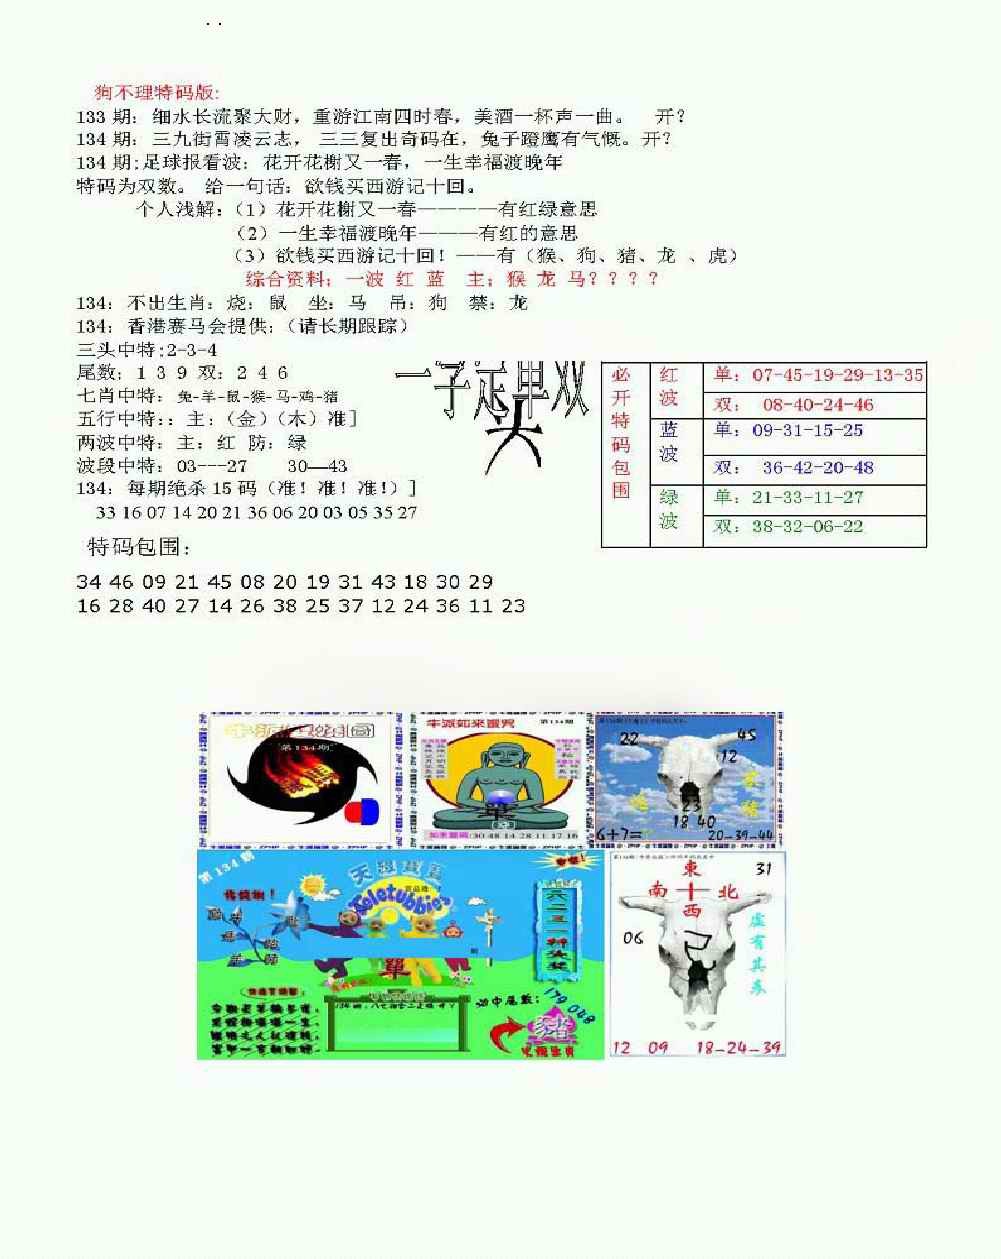 狗不理特码版:
133 期：细水长流聚大财，重游江南四时春，美酒一杯声一曲。 开？
134 期：三九街霄凌云志， 三三复出奇码在，兔子蹬鹰有气慨。开？
134 期:足球报看波：花开花榭又一春，一生幸福渡晚年
特码为双数。 给一句话：欲钱买西游记十回。
个人浅解：（1）花开花榭又一春————有红绿意思
（2）一生幸福渡晚年———有红的意思
（3）欲钱买西游记十回！——有（猴、狗、猪、龙 、虎）
综合资料：一波 红 蓝 主：猴 龙 马？？？？
134：不出生肖：烧：鼠 坐：马 吊：狗 禁：龙
134：香港赛马会提供：（请长期跟踪）
三头中特:2-3-4
尾数：1 3 9 双：2 4 6
七肖中特：兔-羊-鼠-猴-马-鸡-猪
五行中特：：主：（金）（木）准］
两波中特：主：红 防：绿
波段中特：03---27 30—43
134：每期绝杀 15 码（准！准！准！）］
33 16 07 14 20 21 36 06 20 03 05 35 27
特码包围：
34 46 09 21 45 08 20 19 31 43 18 30 29
16 28 40 27 14 26 38 25 37 12 24 36 11 23
一字定单双
必开特码包围
红波
单：07-45-19-29-13-35
双： 08-40-24-46
蓝波
单：09-31-15-25
双： 36-42-20-48
绿波
单：21-33-11-27
双：38-32-06-22
第134期
第134期
單
30 48 14 28 11 17 16
22
45
12
23
18 40
6+7=
20-39-44
第134期
Teletubbies
單
六二三一
179 048
豬
東
南 北
西
31
06
虚有其表
12 09 18-24-39